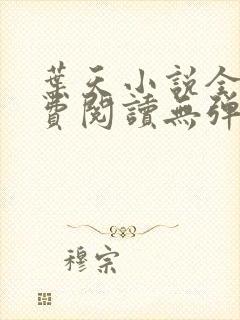 葉天小說全
費閱讀無彈
穆宗